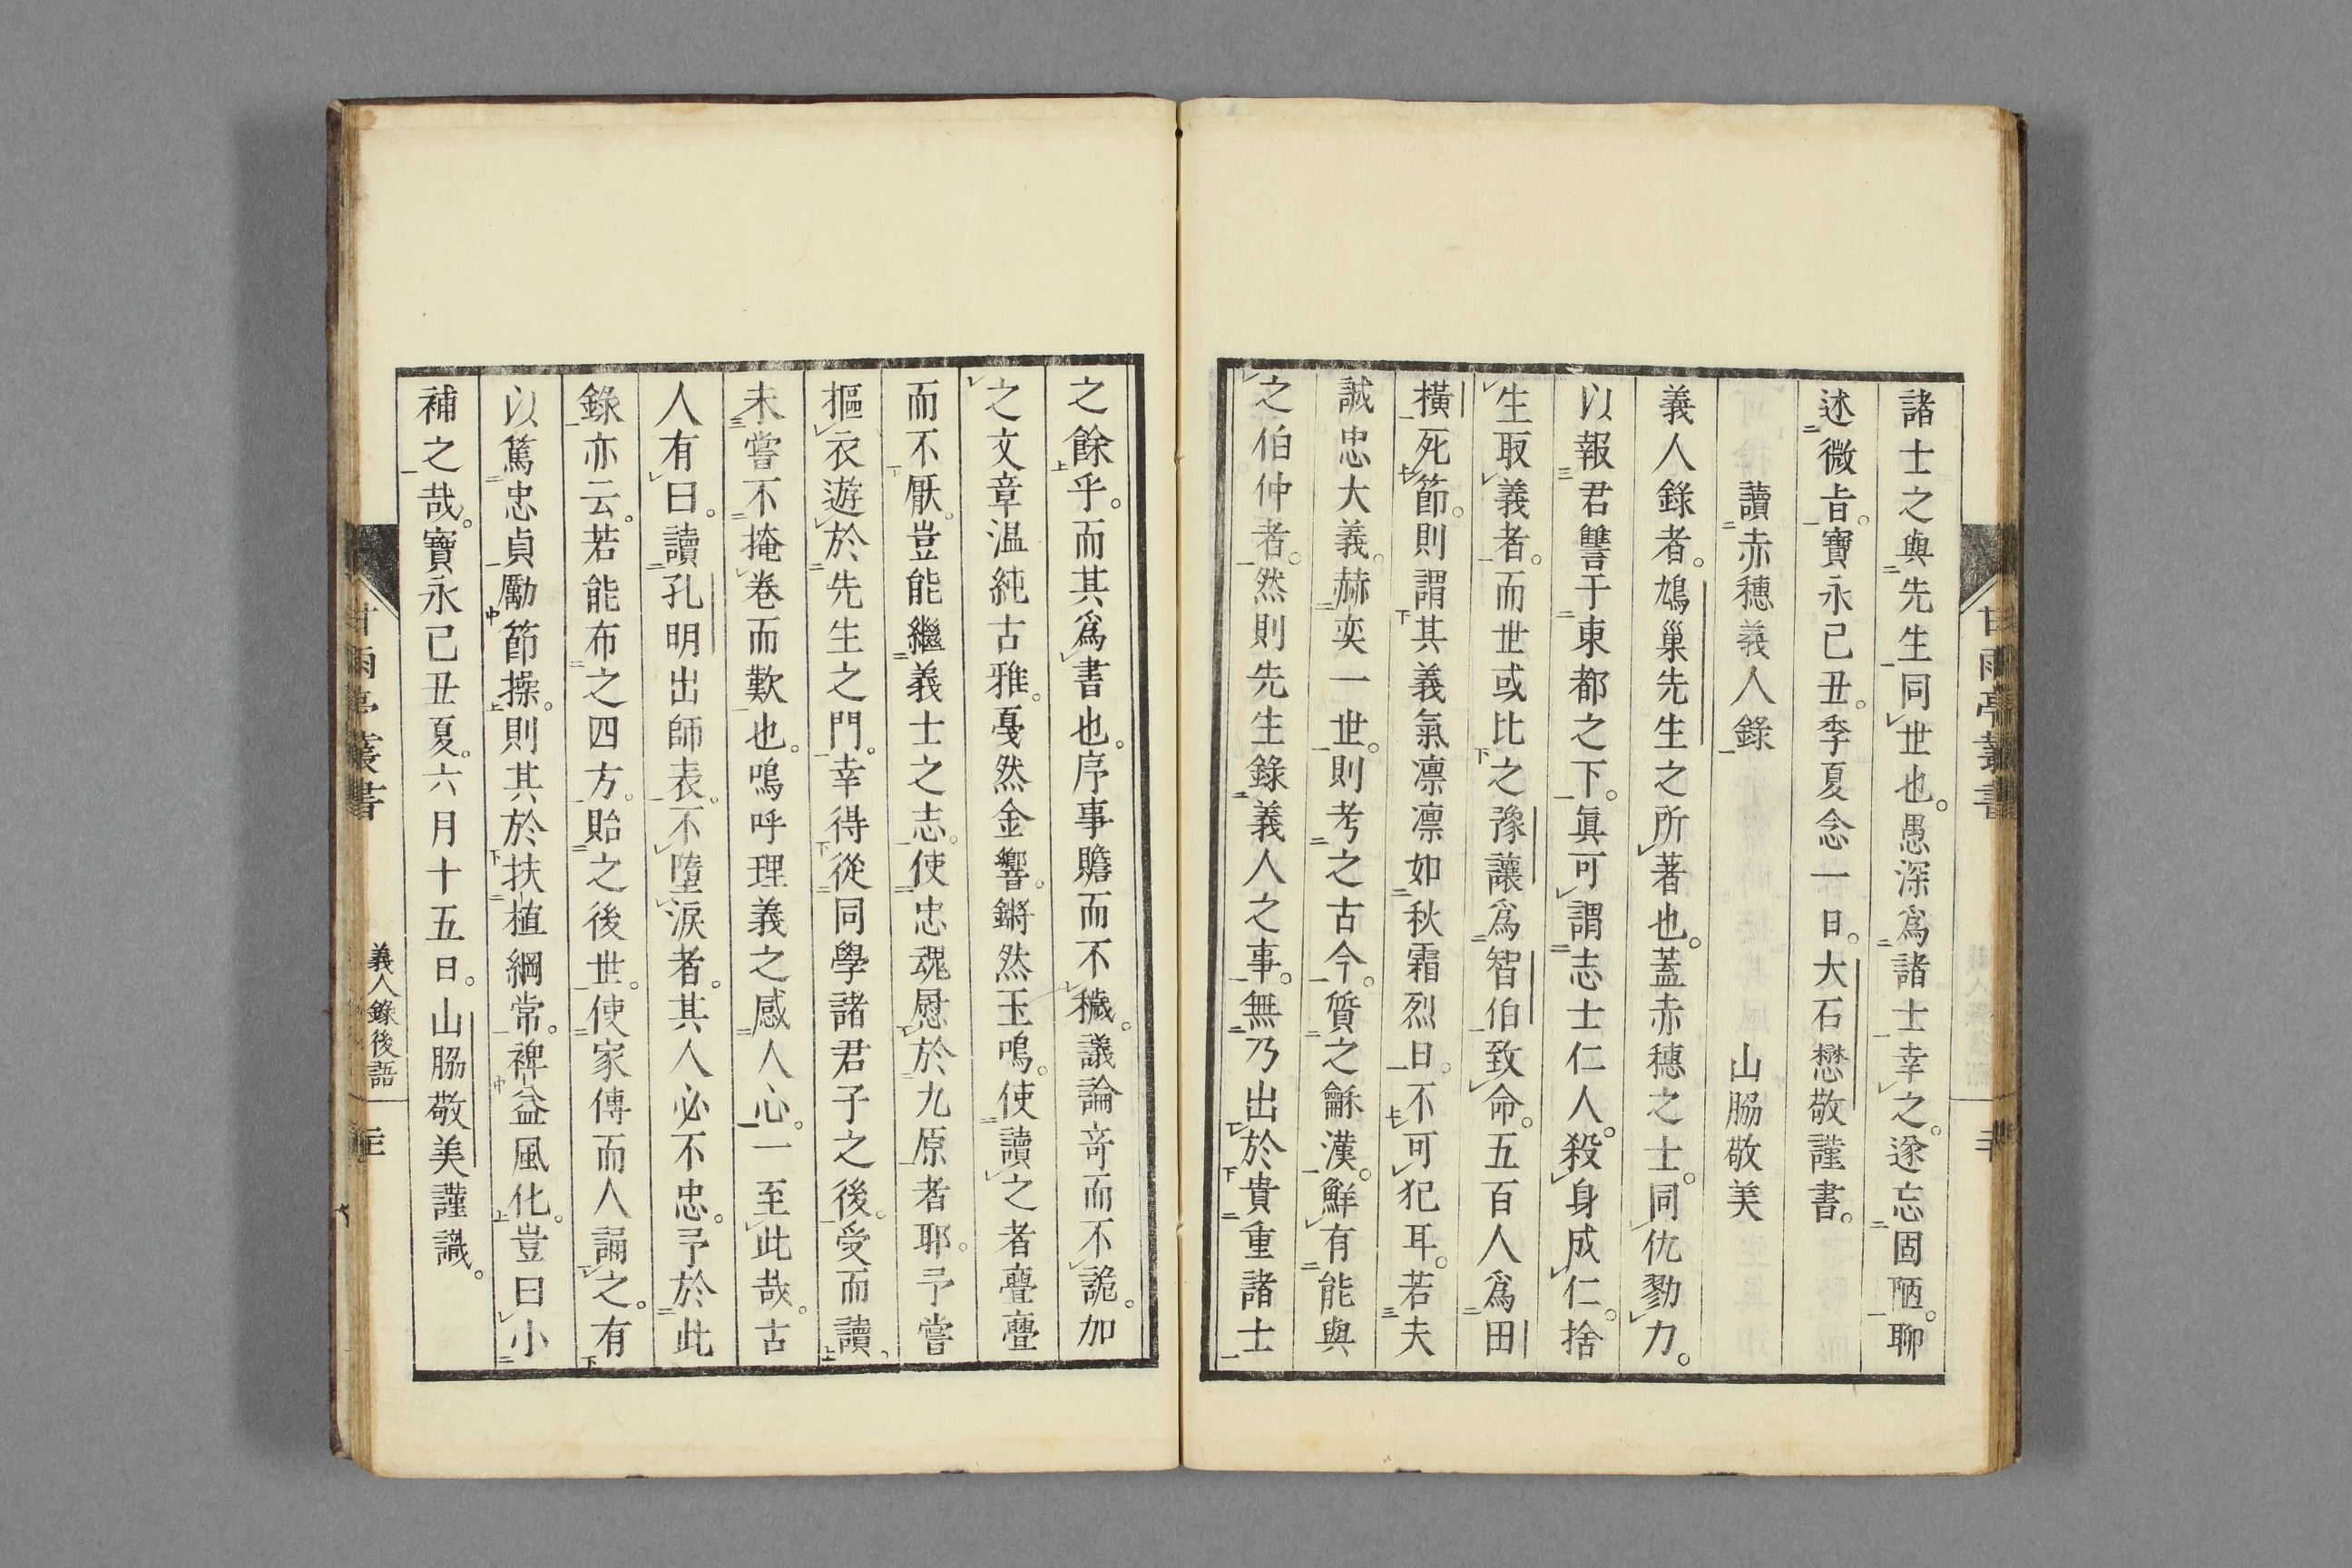 諸士之與先生同世也。愚深爲諸士幸之。遂忘固陋。聊
述微旨。寶永己丑。季夏念一日。大石懋敬謹書。
讀赤穗義人錄
山脇敬美
義人錄者。鳩巢先生之所著也。蓋赤穗之士。同仇勠力。
以報君讐于東都之下。眞可謂志士仁人。殺身成仁。捨
生取義者。而世或比之豫讓爲智伯致命。五百人爲田
橫死節。則謂其義氣凛凛如秋霜烈日。不可犯耳。若夫
誠忠大義。赫奕一世。則考之古今。質之龢漢。鮮有能與
之伯仲者。然則先生錄義人之事。無乃出於貴重諸士
之餘乎。而其爲書也。序事贍而不穢。議論竒而不詭。加
之文章温純古雅。戞然金響。鏘然玉鳴。使讀之者亹亹
而不厭。豈能繼義士之志。使忠魂慰於九原者耶。予嘗
摳衣遊於先生之門。幸得從同學諸君子之後。受而讀、
未嘗不掩卷而歎也。嗚呼理義之感人心。一至此哉。古
人有曰。讀孔明出師表。不墮淚者。其人必不忠。予於此
錄亦云。若能布之四方。貽之後世。使家傳而人誦之。有
以篤忠貞勵節操。則其於扶植綱常。裨益風化。豈曰小
補之哉。寶永己丑夏。六月十五日。山脇敬美謹識。
甘雨亭叢書
義人錄後語
甘雨亭叢書